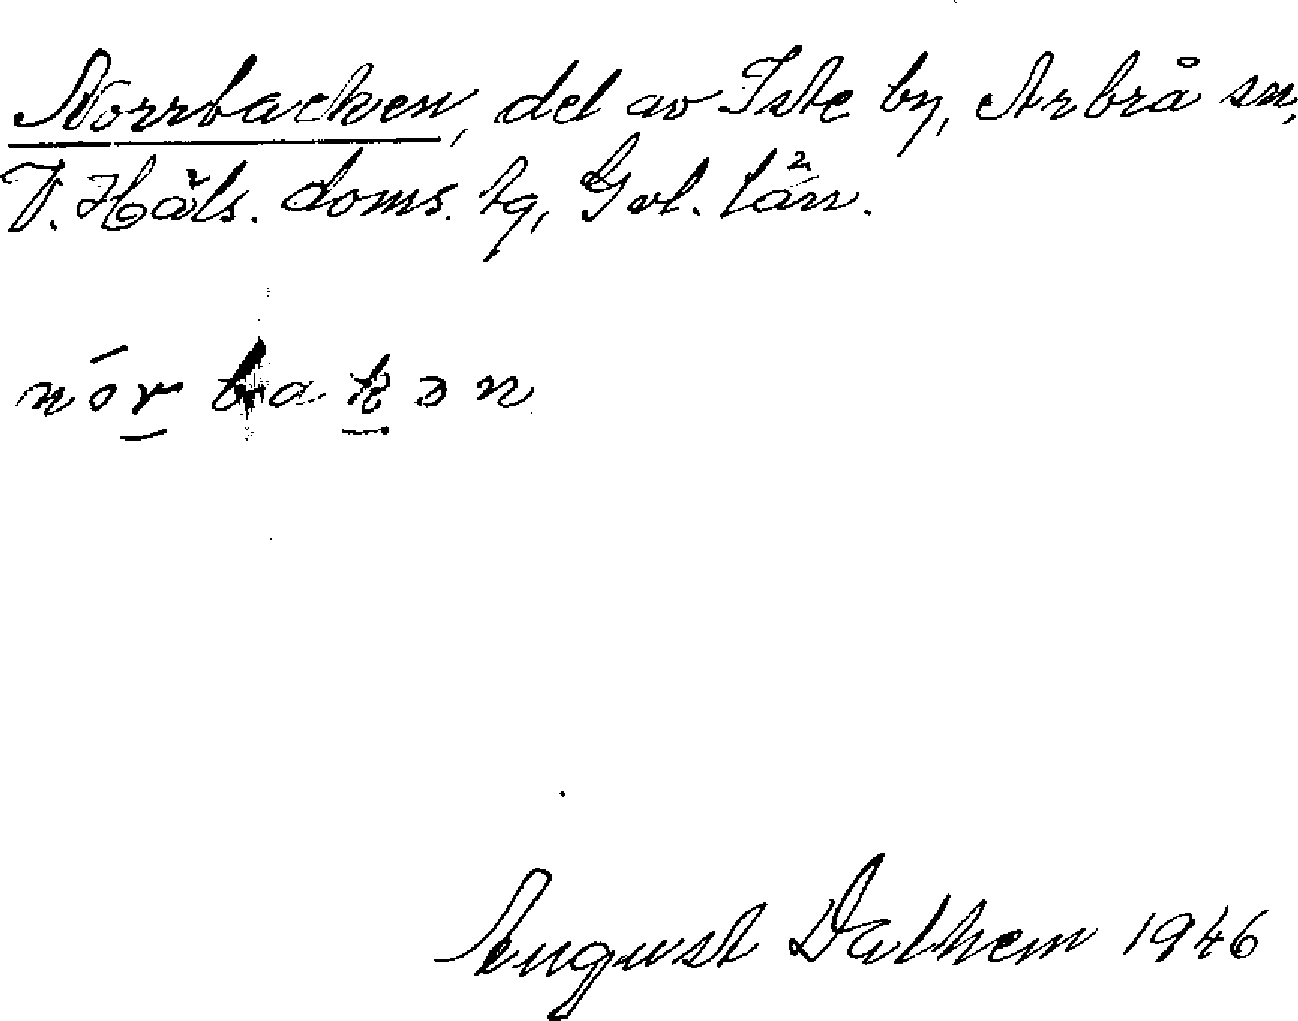 Norrbacken, del av Iste by, Arbrå sn,
V. Häls. doms. tg, Gvl. län.
nórbakən
August Dalhem 1946